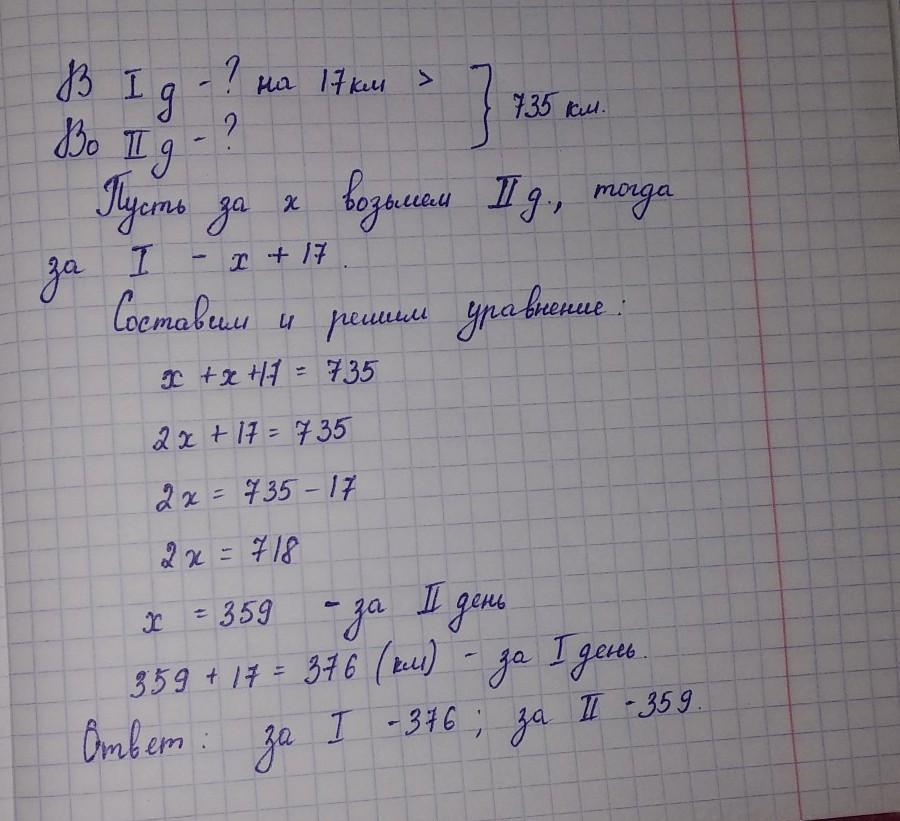 В I д - ? на 17км >
Во II д - ? } 735 км.
Пусть за x возьмем II д., тогда
за I - x + 17.
Составим и решим уравнение:
x + x + 17 = 735
2x + 17 = 735
2x = 735 - 17
2x = 718
x = 359 - за II день
359 + 17 = 376 (км) - за I день.
Ответ: за I - 376; за II - 359.